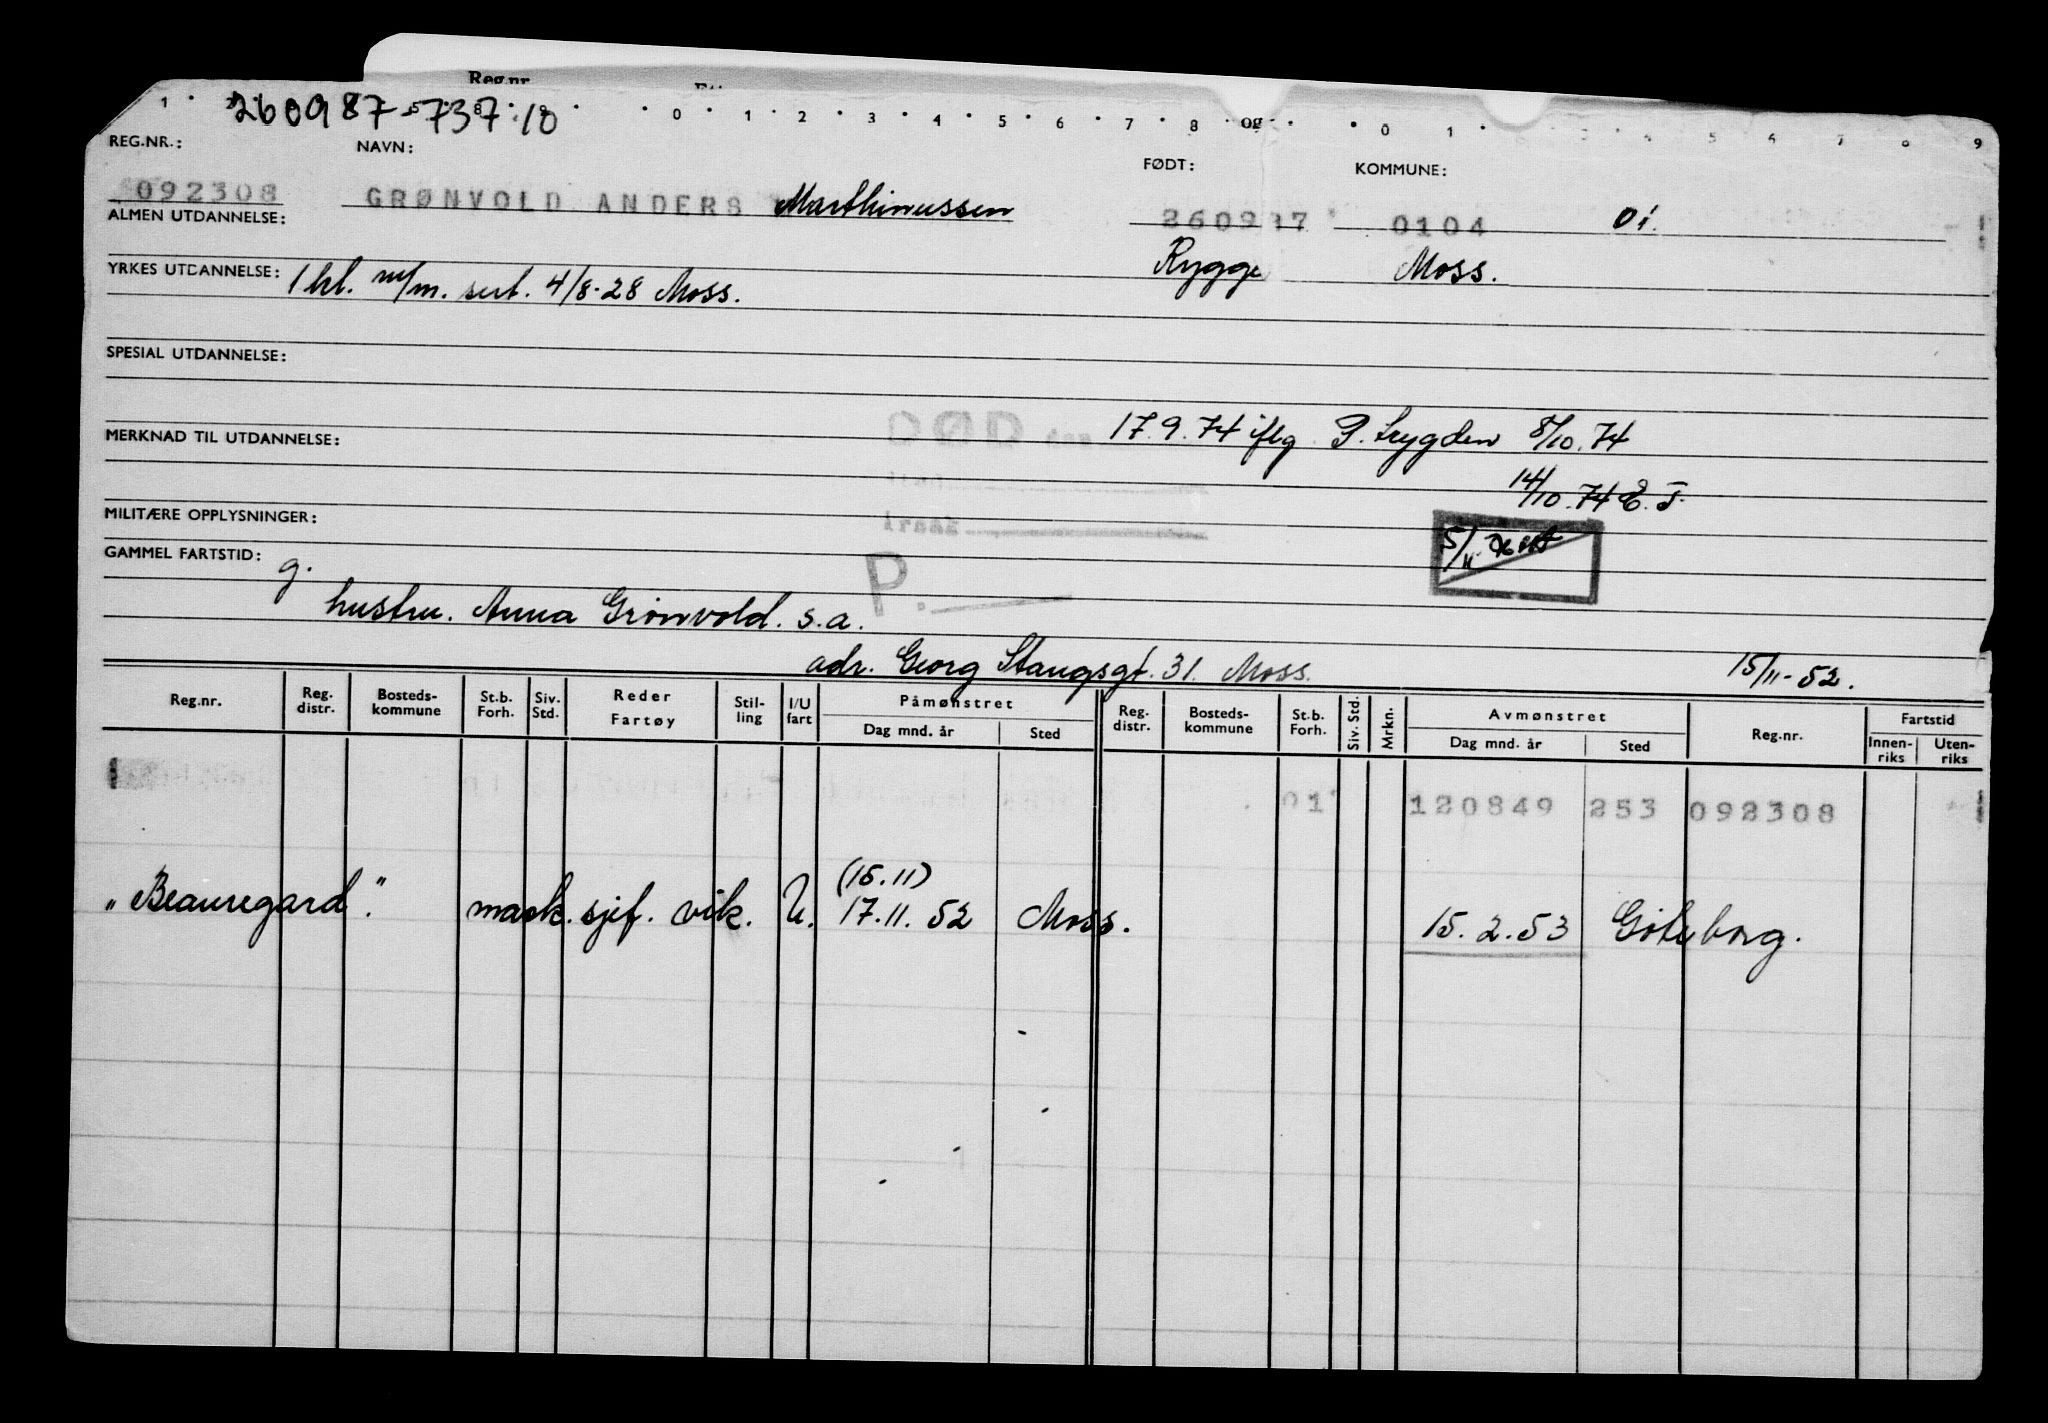 Reg.nr.
1 0 1 2 3 4 5 6 7 8 og 0 1 3 4 5 6 7 8 9
260987-73710
REG.NR.: NAVN: FØDT: KOMMUNE:
092308 GRØNVOLD ANDERS Marthinussen 0104 01.
ALMEN UTDANNELSE: Rygge Moss.
YRKES UTDANNELSE: 1 kl. m/m. sert. 4/8-28 Moss.
SPESIAL UTDANNELSE:
DØD den 17.9.74 iflg P. trygden 8/10.74
MERKNAD TIL UTDANNELSE:
14/10.74 E.T.
MILITÆRE OPPLYSNINGER: årsak
5/11
GAMMEL FARTSTID: g. P.
hustru. Anna Grönvold. s.a.
adr. Georg Stangsgt. 31. Moss. 15/11-52.
Reg.nr. Reg. distr. Bosteds-kommune St.b. Forh. Siv. Std. Reder Fartøy Stil-ling I/U fart Påmønstret Dag mnd. år Sted Reg. distr. Bosteds-kommune St.b. Forh. Siv. Std. Mrkn. Avmønstret Dag mnd. år Sted Reg.nr. Fartstid Innen-riks Uten-riks
01 120849 253 092308
(15.11)
"Beauregard". mask. sjef. vik. U. 17.11.52 Moss. 15.2.53 Göteborg.